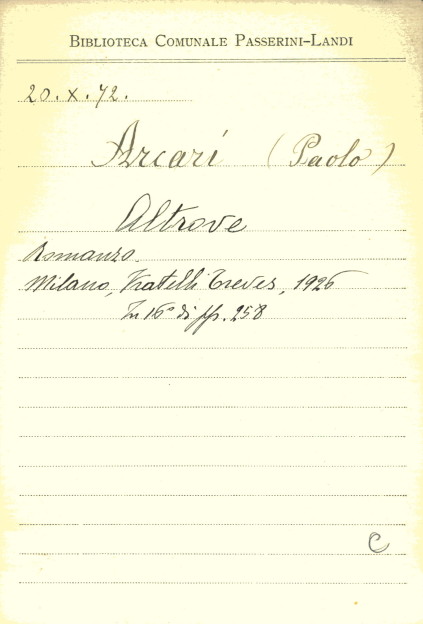 BIBLIOTECA COMUNALE PASSERINI-LANDI
20.X.72.
Arcari (Paolo)
Altrove
Romanzo.
Milano, Fratelli Treves, 1926
In 16° di pp. 258
C